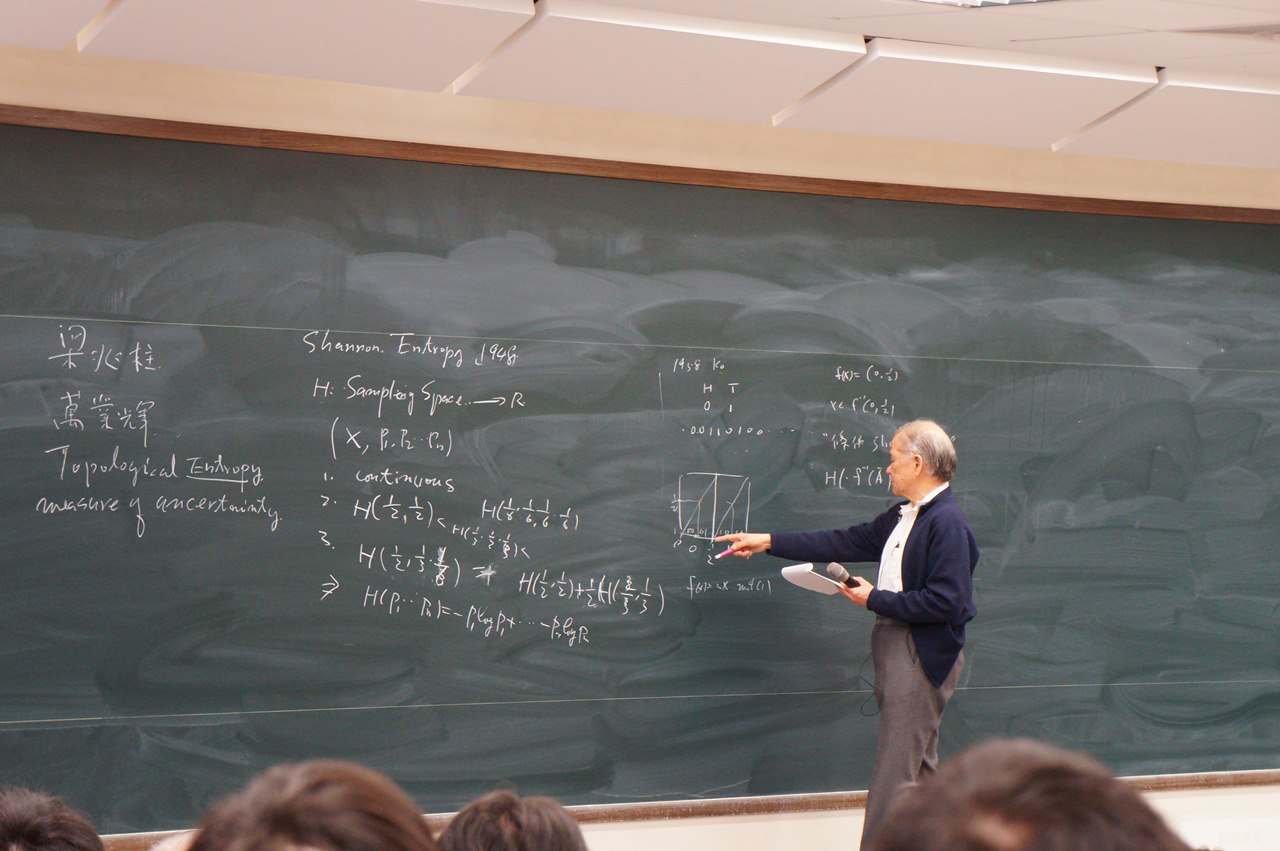 梁兆柱.
萬業輝.
Topological Entropy
measure of uncertainty.
Shannon. Entropy 1948.
H: Sampling Space. → R
(X, p₁. p₂ ... pₙ)
1. continuous
2. H(1/2, 1/2) < H(1/3 · 1/3 · 1/3) < H(1/6 · 1/6, 1/6 · 1/6)
3. H(1/2, 1/3 · 1/6) = H(1/2, 1/2) + 1/2 H(2/3, 1/3)
⇒ H(p₁ ... pₙ) = - p₁ log p₁ + ... - pₙ log pₙ
1958 Ko
H T
0 1
.00110100...
1/2
0 0 1/2
f(x) = 2x mod (1)
f(x) = (0, 1/2)
x ∈ f⁻¹(0, 1/2)
"條件 Sh
H(· f⁻¹(A